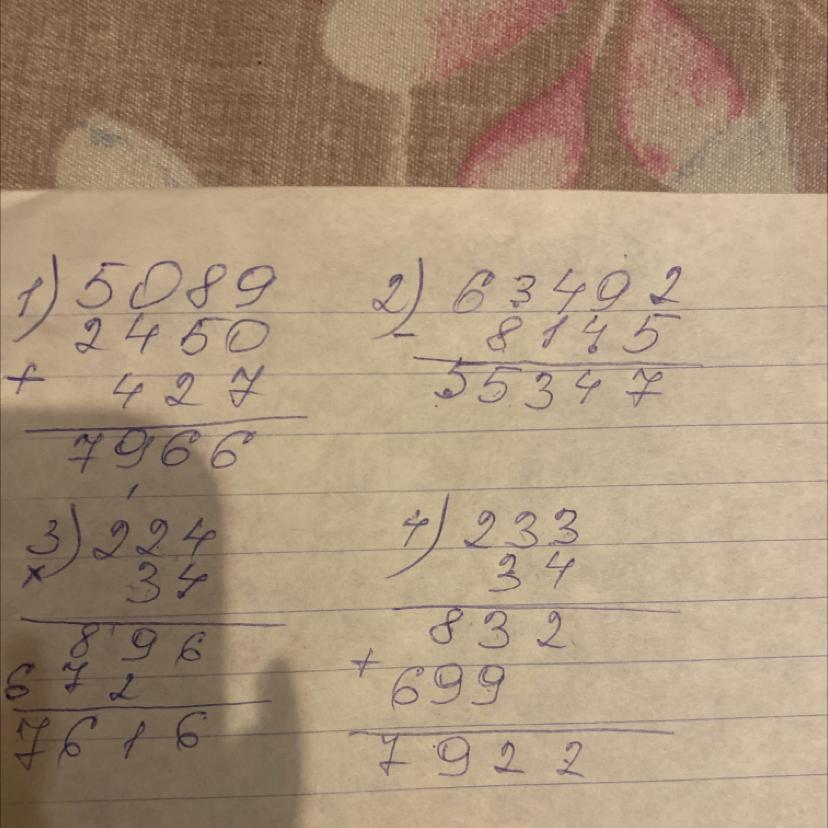 1) 5089
2450
+ 427
7966
2) 63492
- 8145
55347
3) 224
x 34
896
672
7616
4) 233
34
832
+ 699
7922